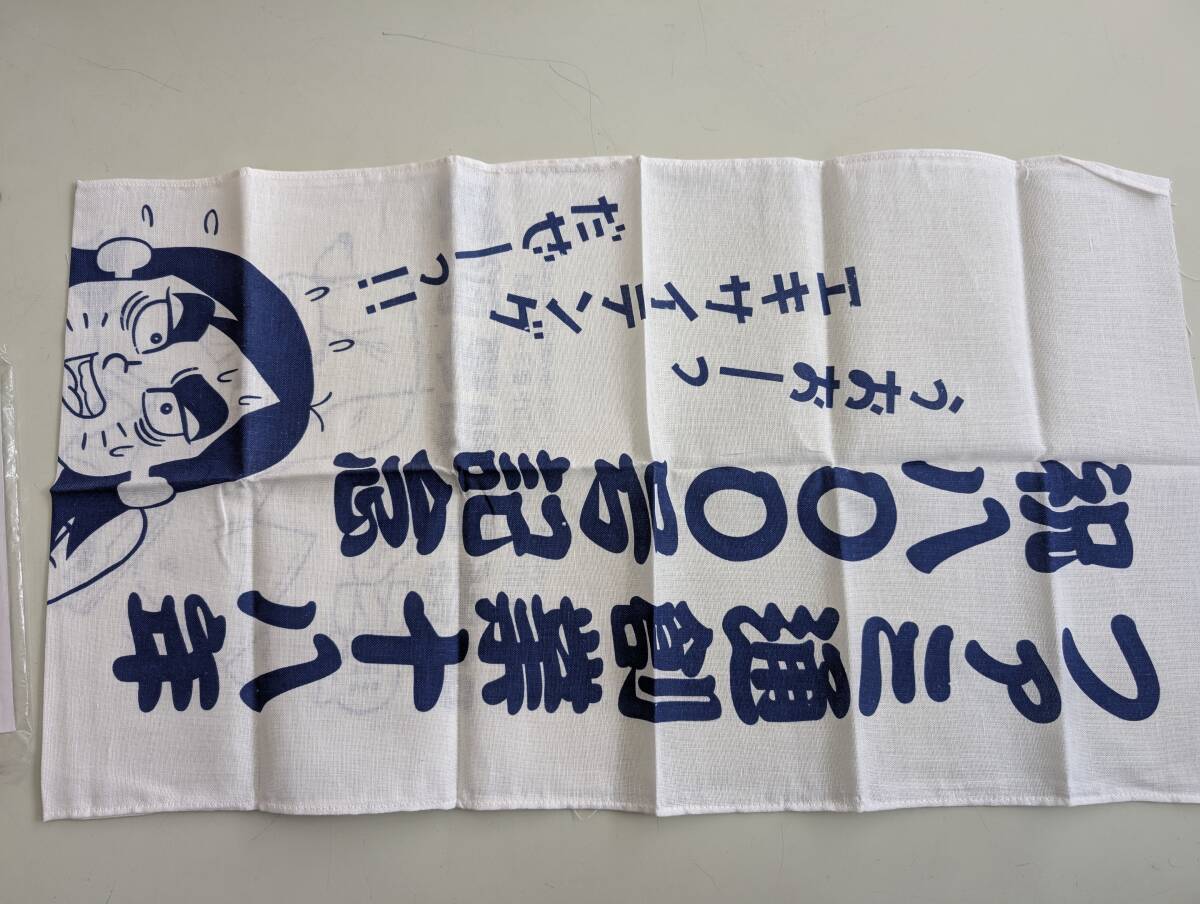 ファミ通創業十八年
祝八〇〇号記念
うおおーっ
エキサイテング
だぜーっ!!